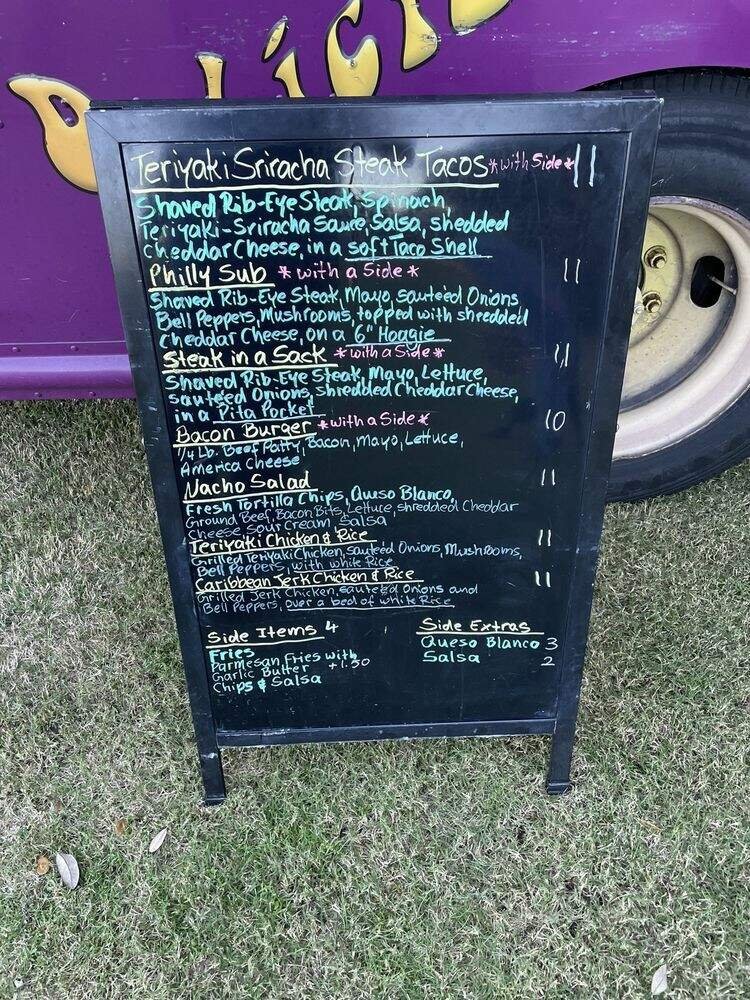 Delicio
Teriyaki Sriracha Steak Tacos *with Side* 11
Shaved Rib-Eye Steak, Spinach,
Teriyaki-Sriracha Sauce, Salsa, Shedded
Cheddar Cheese, in a soft Taco Shell
Philly Sub *with a Side* 11
Shaved Rib-Eye Steak, Mayo, sauteéd Onions,
Bell Peppers, Mushrooms, topped with shredded
Cheddar Cheese, on a 6" Hoagie
Steak in a Sack *with a Side* 11
Shaved Rib-Eye Steak, Mayo, Lettuce,
sauteéd Onions, Shredded Cheddar Cheese,
in a Pita Pocket
Bacon Burger *with a Side* 10
1/4 Lb. Beef Patty, Bacon, Mayo, Lettuce,
America Cheese
Nacho Salad 11
Fresh Tortilla Chips, Queso Blanco,
Ground Beef, Bacon Bits, Lettuce, shredded Cheddar
Cheese, Sour Cream, Salsa
Teriyaki Chicken & Rice 11
Grilled Teriyaki Chicken, sauteéd Onions, Mushrooms,
Bell Peppers, with white Rice
Caribbean Jerk Chicken & Rice 11
Grilled Jerk Chicken, sauteéd Onions and
Bell Peppers, over a bed of white Rice
Side Items 4
Fries
Parmesan Fries with
Garlic Butter +1.50
Chips & Salsa
Side Extras
Queso Blanco 3
Salsa 2